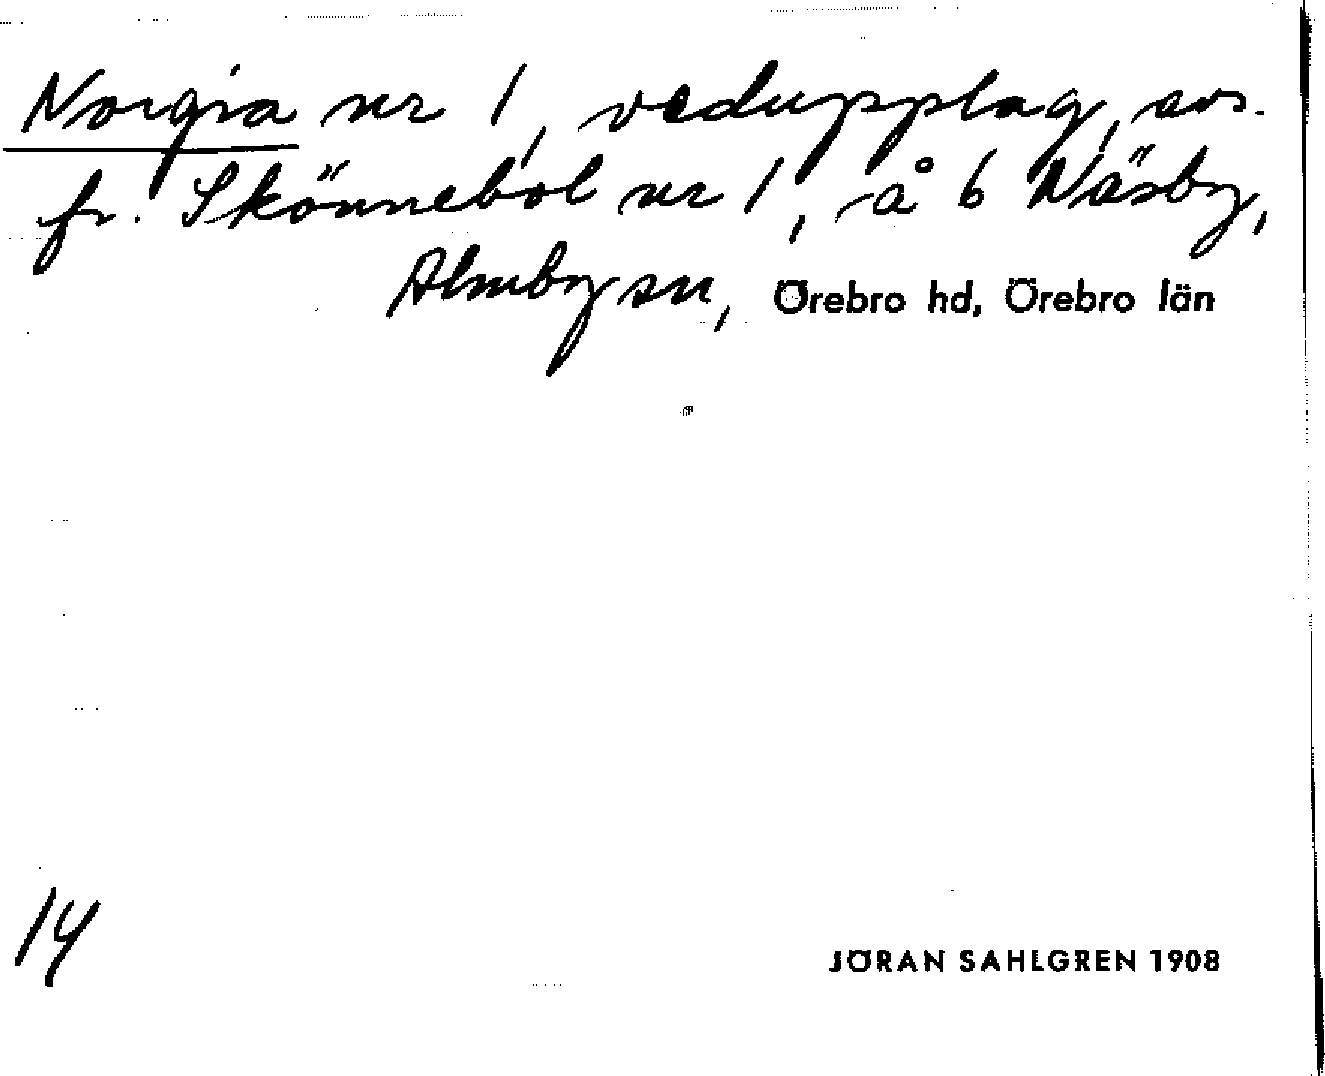 Norgia nr 1, vedupplag, avs.
fr. Skönnebol nr 1, å 6 Näsby,
Almby sn, Örebro hd, Örebro län
14
JÖRAN SAHLGREN 1908